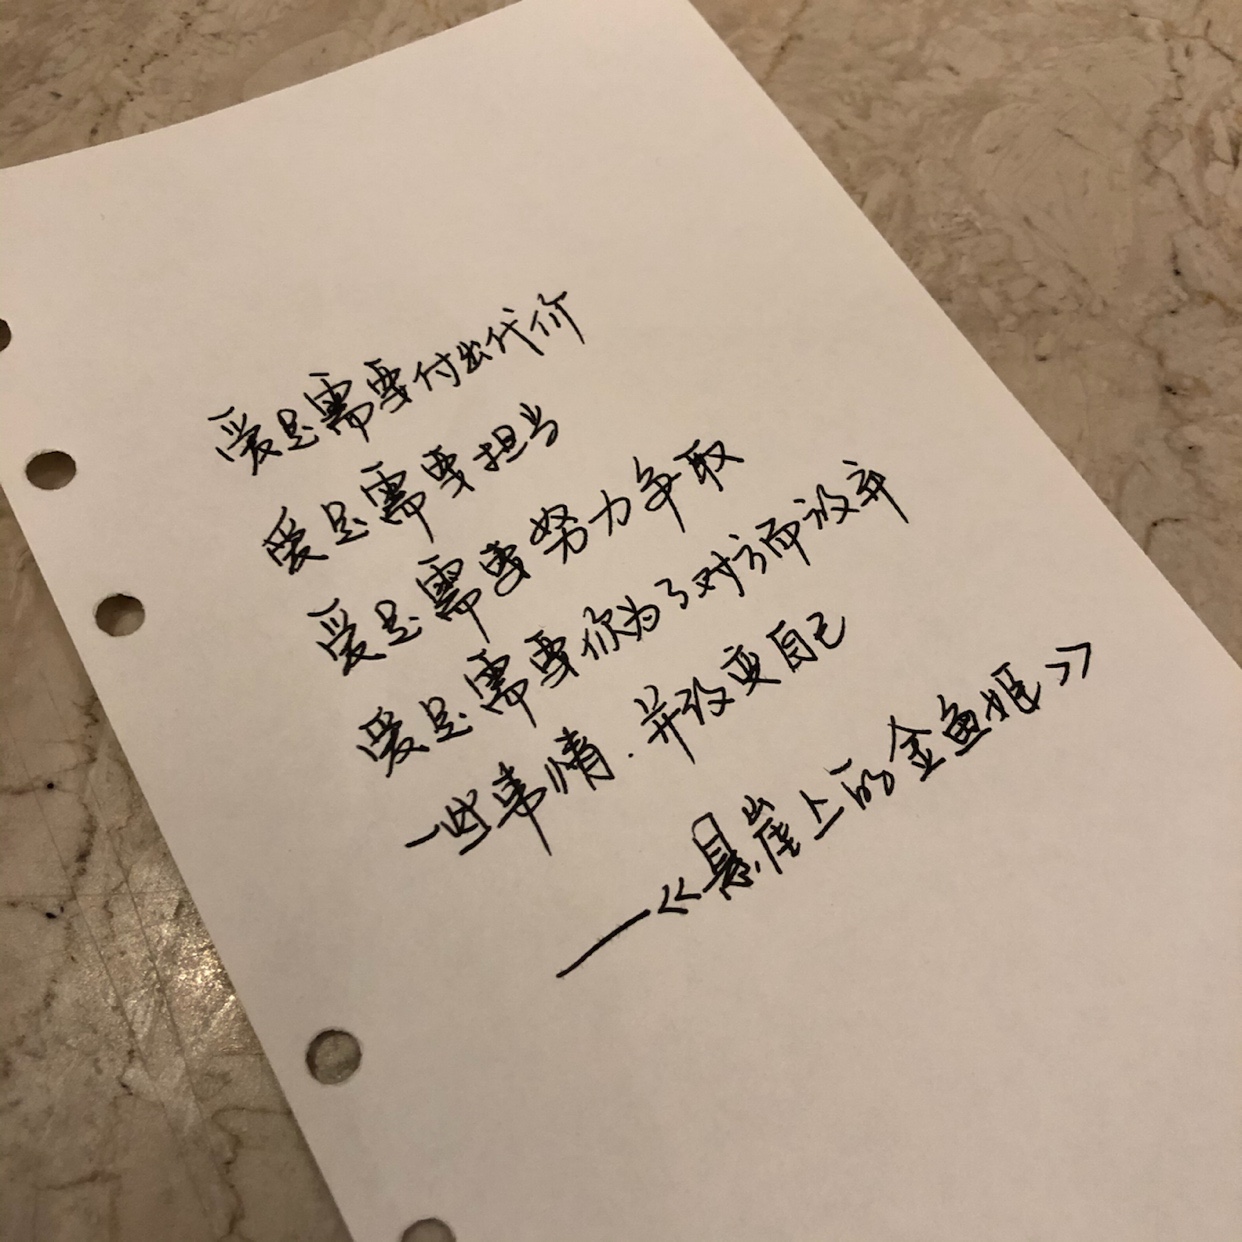 爱是需要付出代价
爱是需要担当
爱是需要努力争取
爱是需要你为了对方而放弃
一些事情.并改变自己
——《悬崖上的金鱼姬》